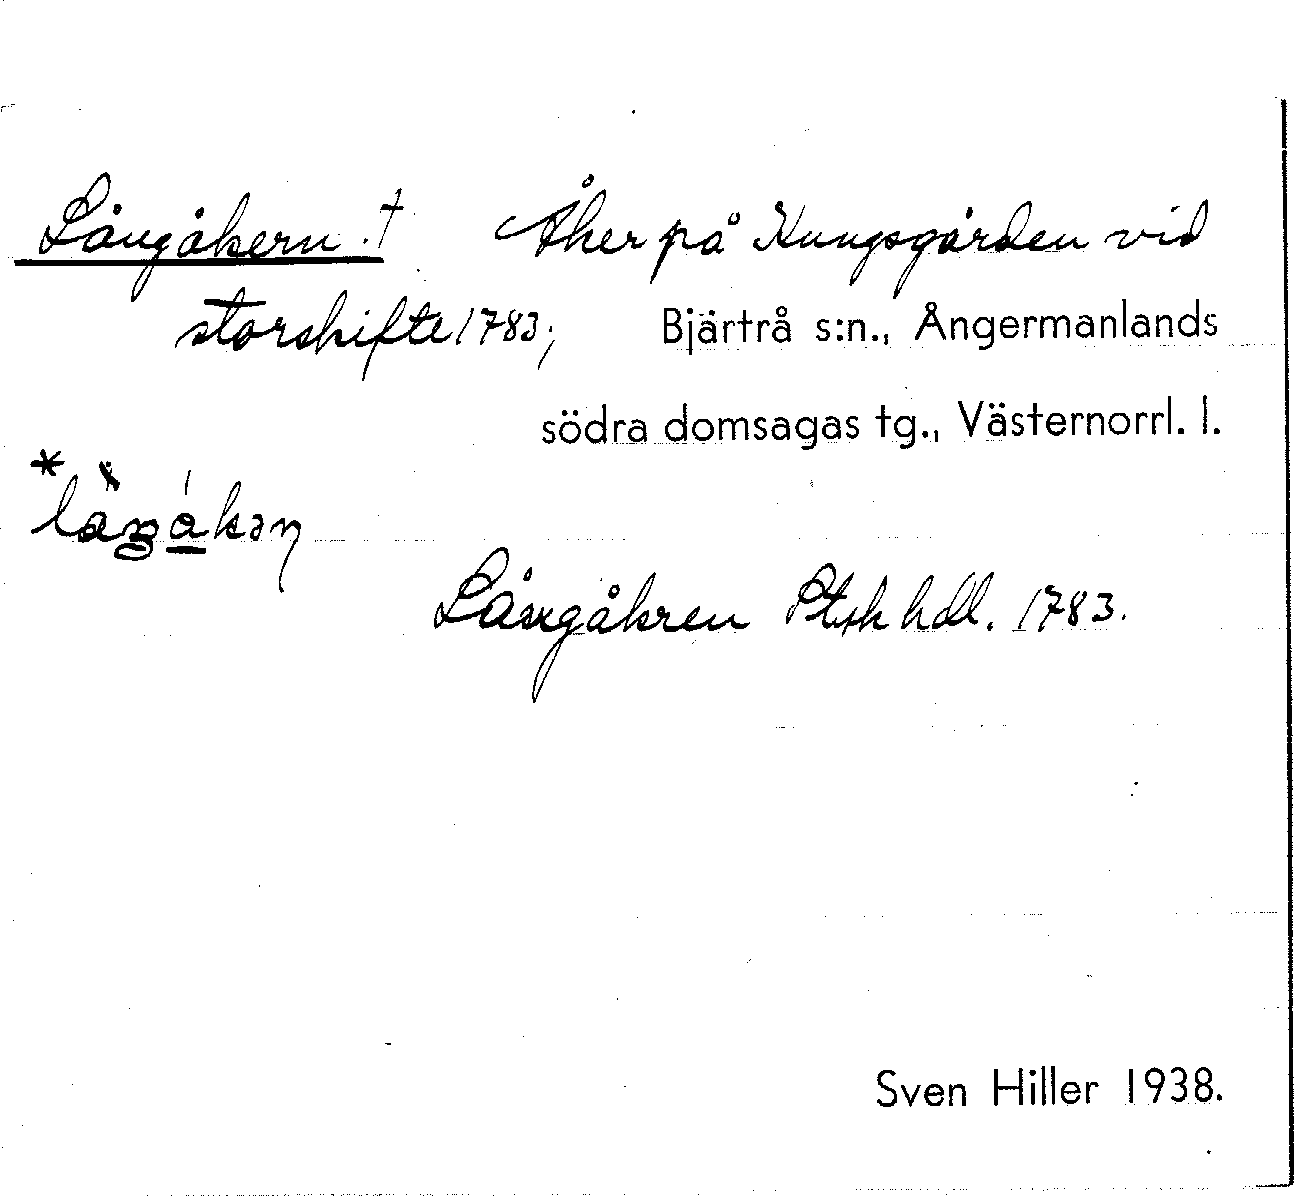 Långåkern. † Åker på Kungsgården vid
storskifte 1783; Bjärtrå s:n., Ångermanlands
södra domsagas tg., Västernorrl. l.
Långåkren Stsk hdl. 1783.
Sven Hiller 1938.